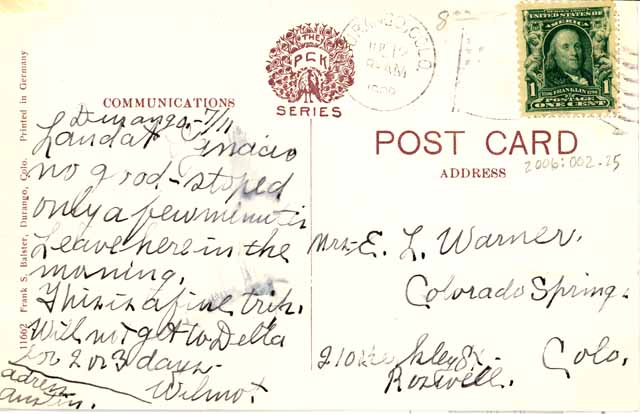 THE
PCK
SERIES
DURANGO, COLO.
8
UNITED STATES OF AMERICA
1 FRANKLIN 1
POSTAGE
ONE CENT
COMMUNICATIONS
POST CARD
ADDRESS
2006:002.25
11662 Frank S. Balster, Durango, Colo. Printed in Germany
Durango, 7/11
Land at Ignacio
no good - stoped
only a few minutes
Leave here in the
morning.
This is a fine trip.
Will not get to Delta
for 2 or 3 days.
Wilmot
adress
Austin.
Mrs. E. L. Warner.
Colorado Springs
Colo.
Roswell.